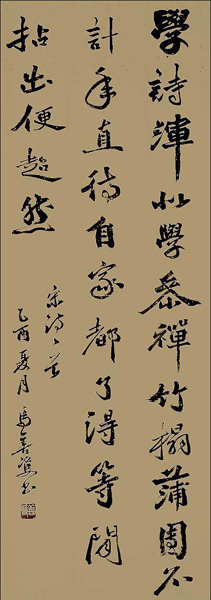 學詩渾似學參禪竹榻蒲團不
計年直待自家都了得等閒
拈出便超然
宋诗一首
乙酉夏月馬善雙书